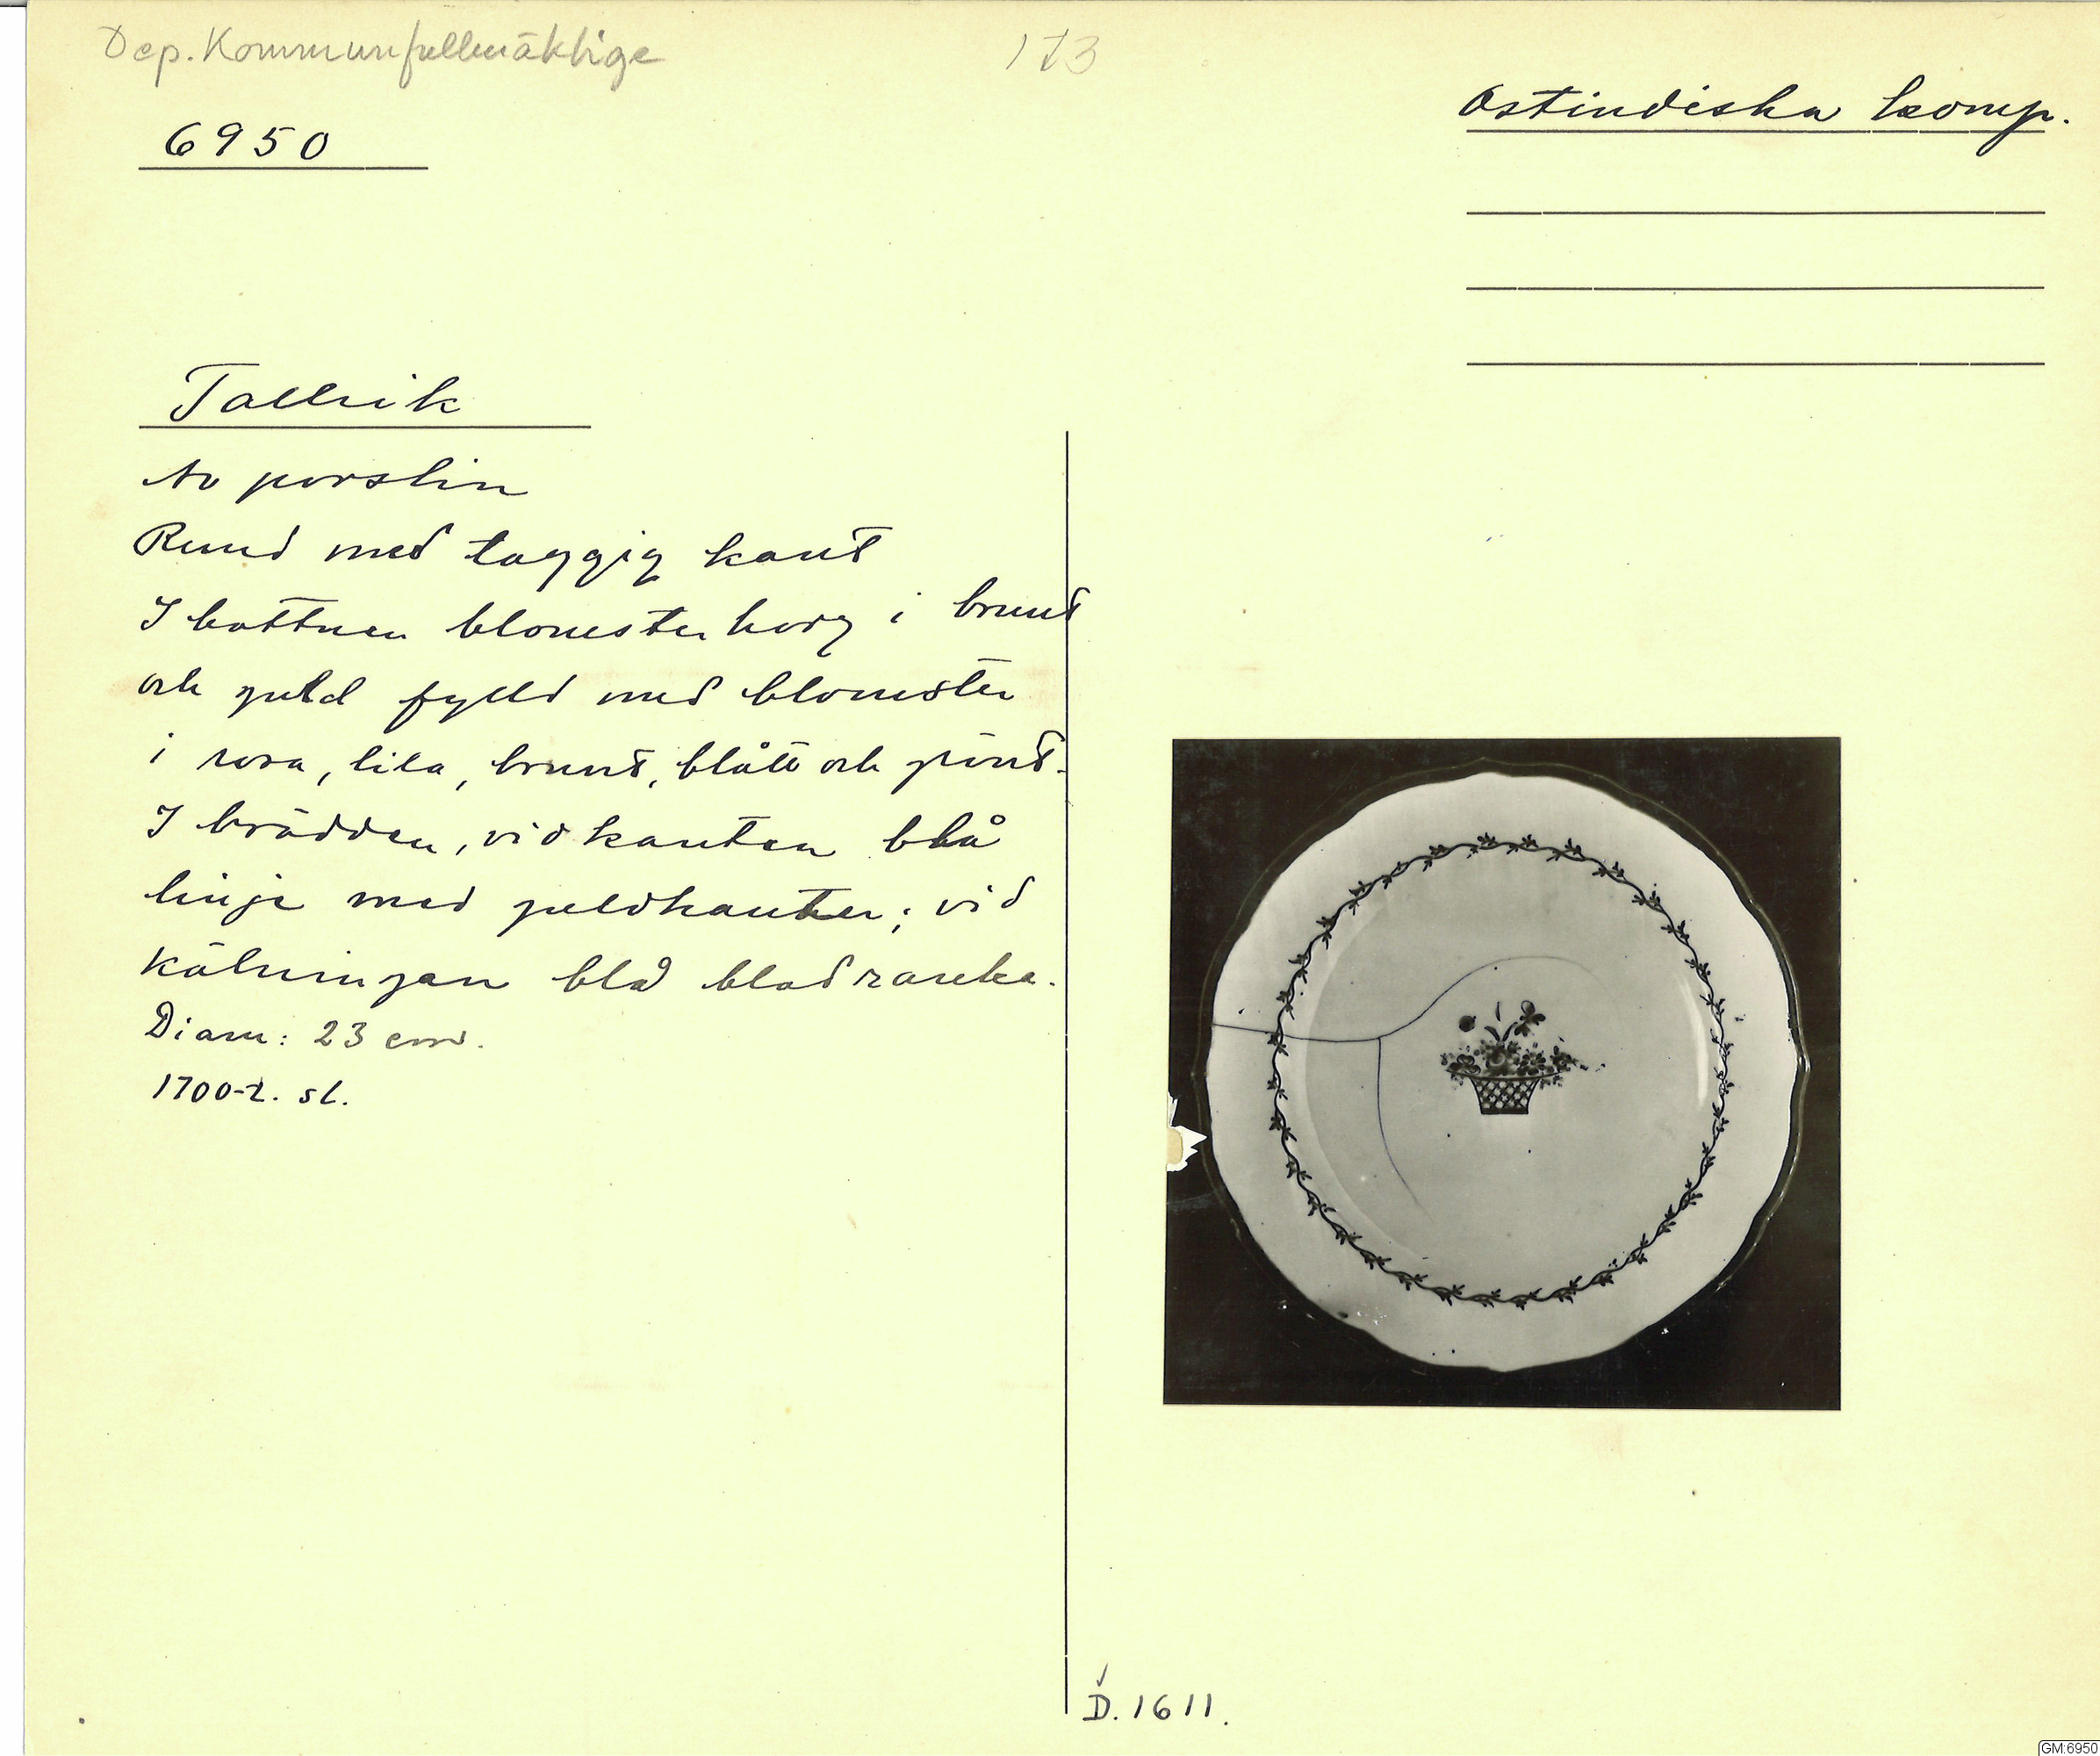 Dep. Kommunfullmäktige
173
Ostindiska komp.
6950
Tallrik
Av porslin
Rund med taggig kant
I bottnen blomsterkorg i brunt
och guld fylld med blomster
i rosa, lila, brunt, blått och grönt.
I brädden, vid kanten blå
linje med guldkanter; vid
kälningen blå bladranka.
Diam: 23 cm.
1700-t. sl.
D. 1611.
GM:6950